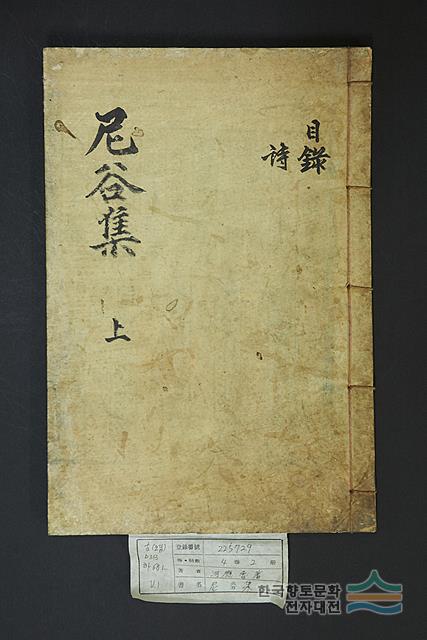 目錄
詩
尼谷集
上
登錄番號 225729
卷·冊數 4 卷 2 冊
著者
書名 尼谷集
V.1
한국향토문화
전자대전